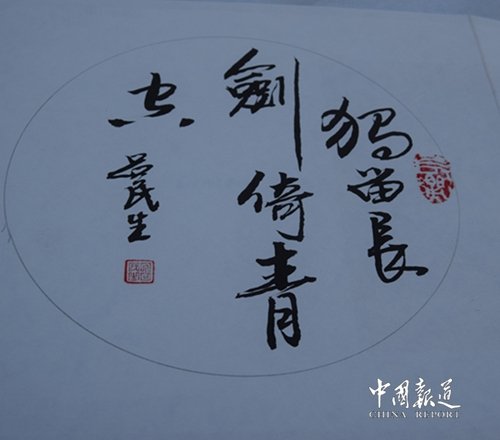 獨留長
劍倚青
空
民生
中國報道
CHINA REPORT